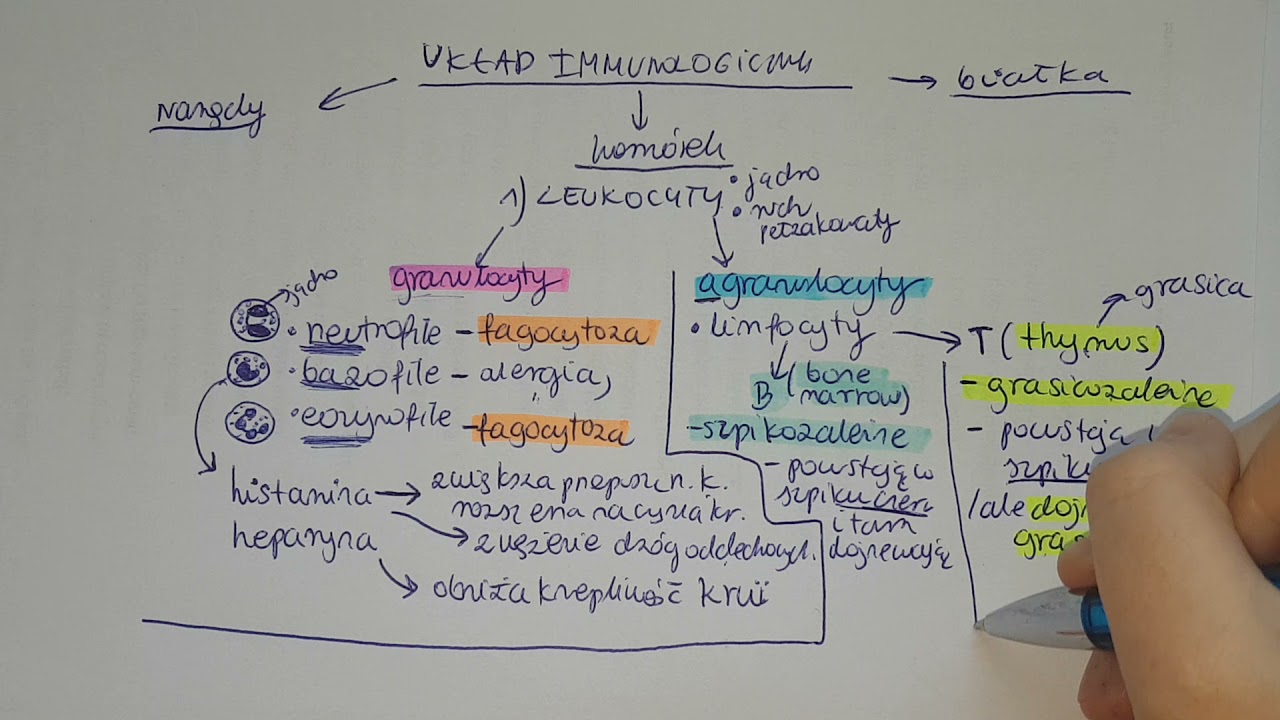 UKŁAD IMMUNOLOGICZNY
narządy
białka
komórek
1) LEUKOCYTY
• jądro
• ruch
pełzakowaty
granulocyty
jądro
• neutrofile – fagocytoza
• bazofile – alergia,
• eozynofile – fagocytoza
histamina → zwiększa przepusz. n. k.
rozszerza naczynia kr.
→ zwężenie dróg oddechowych.
heparyna
→ obniża krzepliwość krwi
agranulocyty
• limfocyty → T (thymus)
grasica
B (bone
marrow)
– szpikozależne
– powstają w
szpiku czerw
i tam
dojrzewają
– grasicozależne
– powstają
szpiku
/ale doj
gras